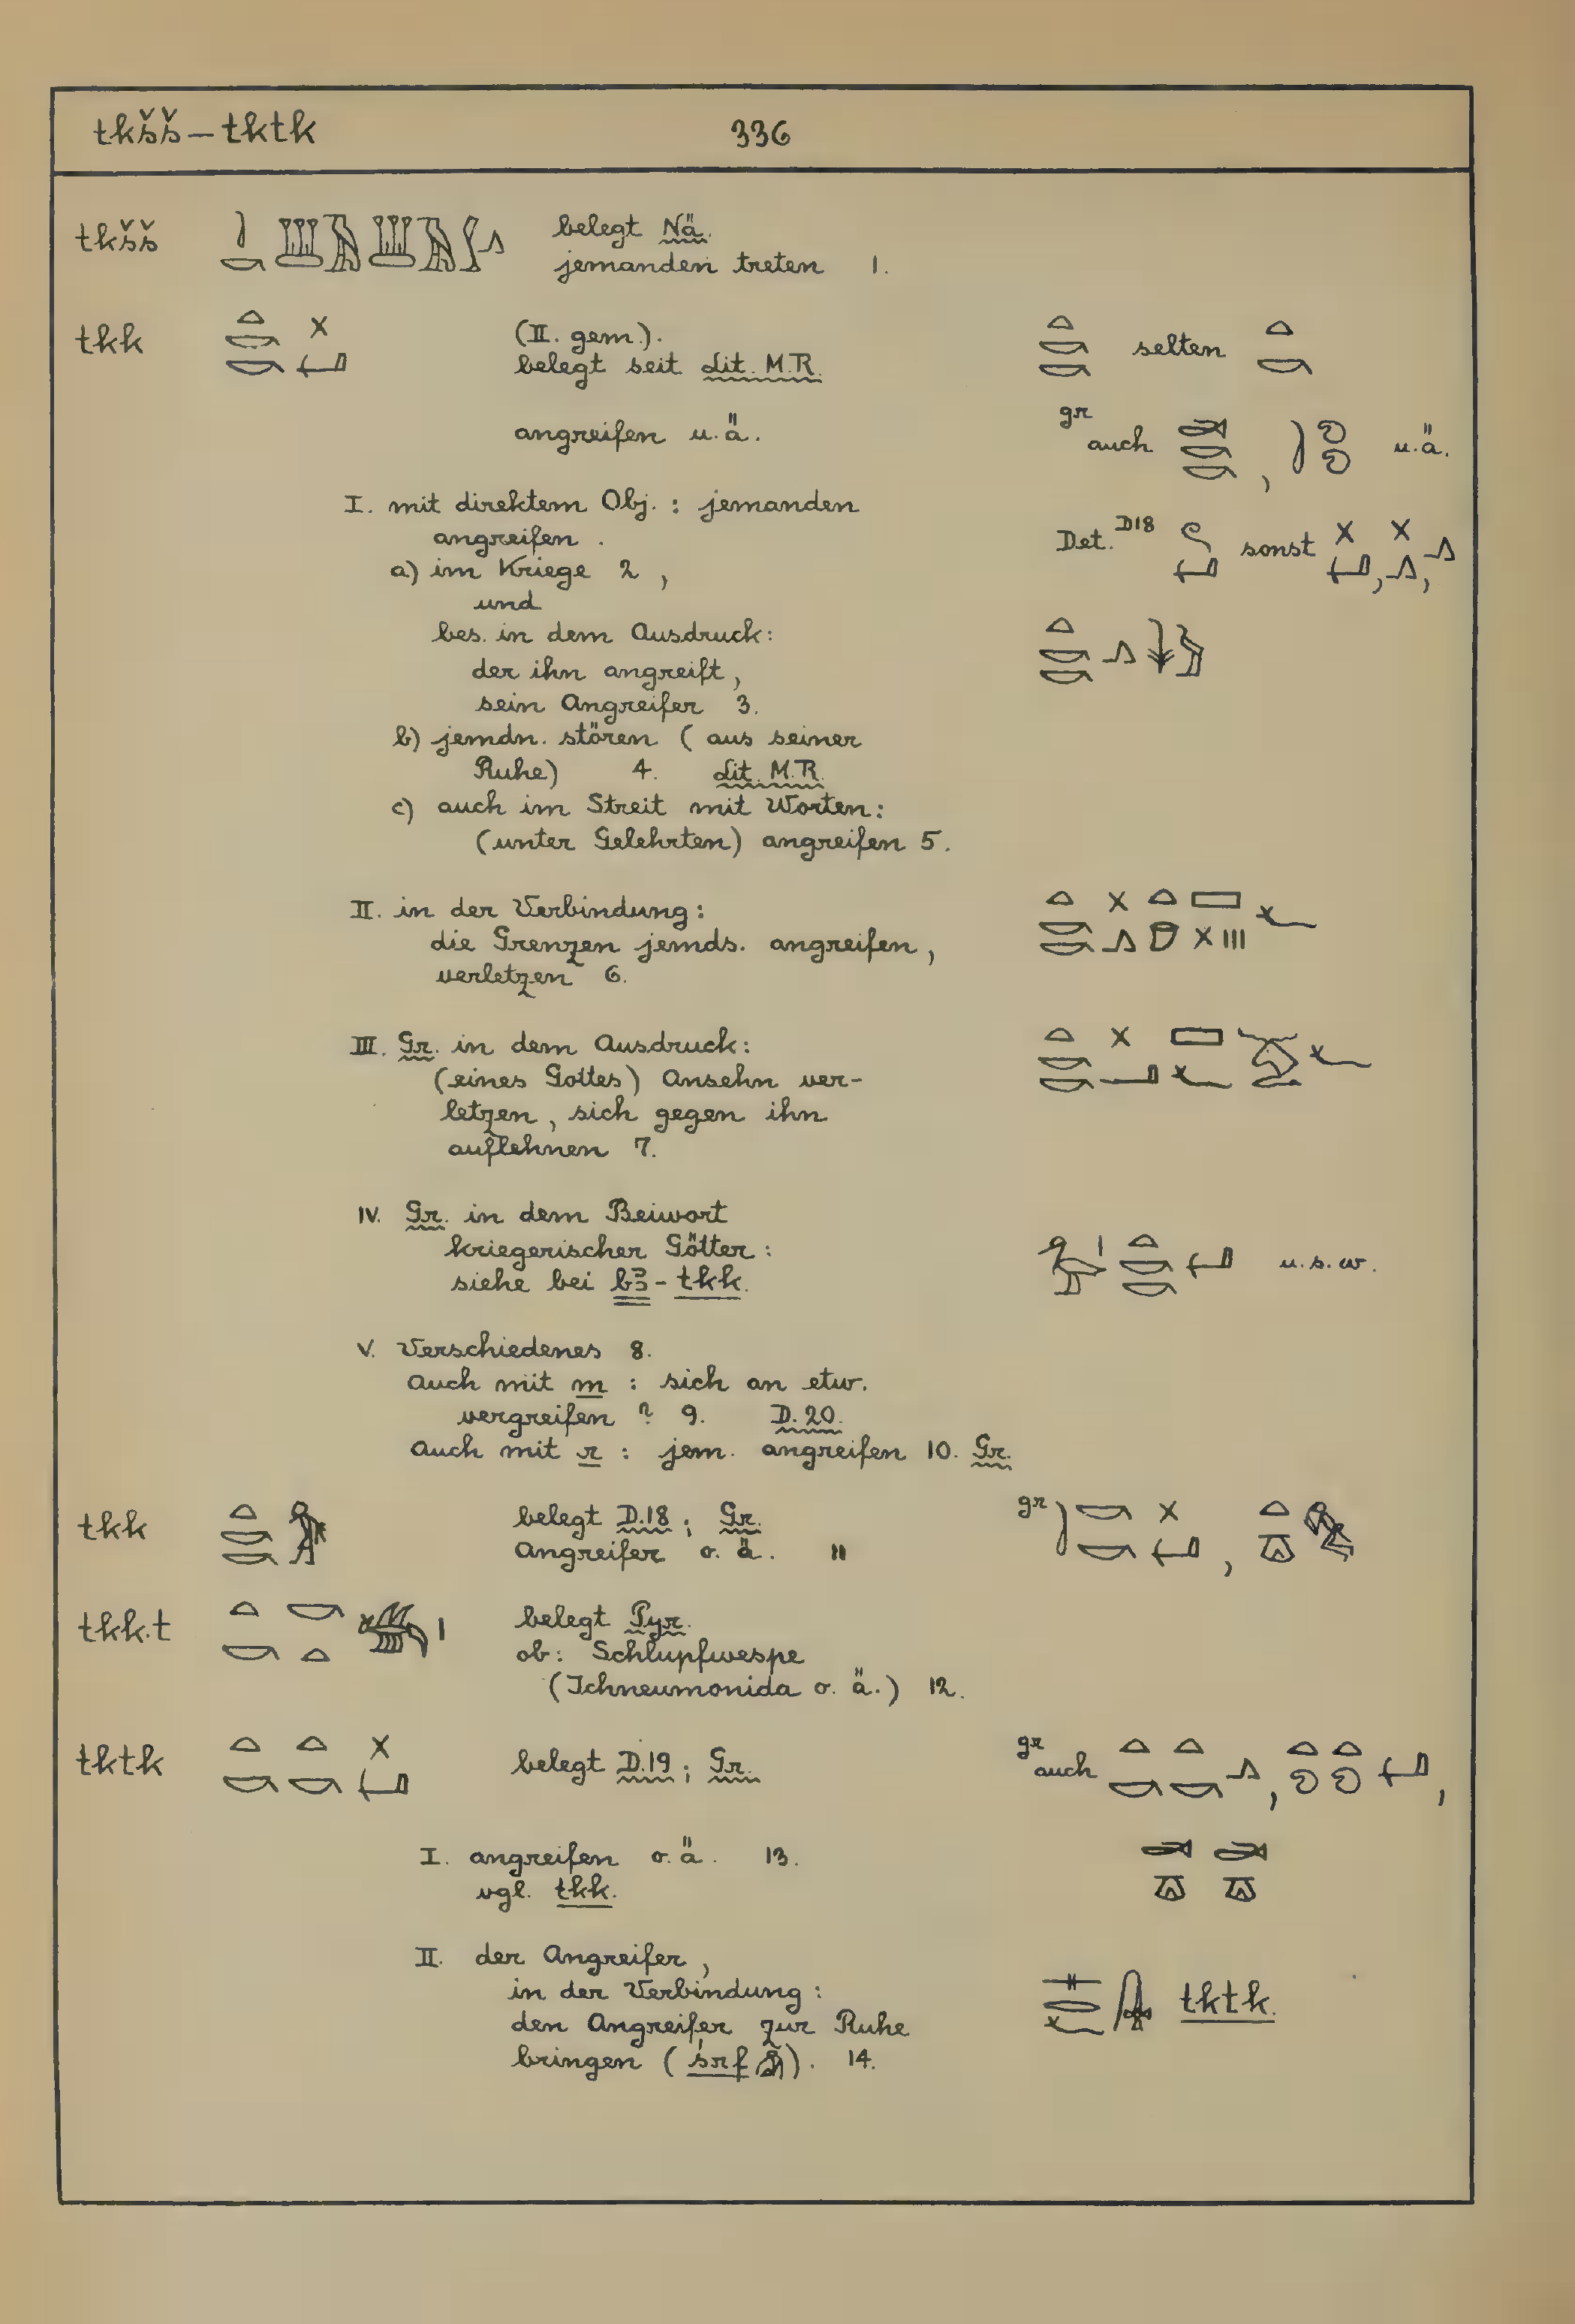 tkšš – tktk 336
tkšš belegt Nä.
jemanden treten 1.
tkk (II. gem.). selten
belegt seit Lit. M.R.
gr
angreifen u.ä. auch , u.ä.
I. mit direktem Obj.: jemanden
angreifen. Det. D18 sonst , ,
a) im Kriege 2,
und
bes. in dem Ausdruck:
der ihn angreift,
sein Angreifer 3.
b) jemdn. stören (aus seiner
Ruhe) 4. Lit. M.R.
c) auch im Streit mit Worten:
(unter Gelehrten) angreifen 5.
II. in der Verbindung:
die Grenzen jemds. angreifen,
verletzen 6.
III. Gr. in dem Ausdruck:
(eines Gottes) Ansehn ver-
letzen, sich gegen ihn
auflehnen 7.
IV. Gr. in dem Beiwort
kriegerischer Götter:
siehe bei bꜣ-tkk. u.s.w.
V. Verschiedenes 8.
Auch mit m : sich an etw.
vergreifen ? 9. D.20.
Auch mit r : jem. angreifen 10. Gr.
tkk belegt D.18; Gr. gr ,
Angreifer o.ä. 11
tkk.t belegt Pyr.
ob: Schlupfwespe
(Ichneumonida o.ä.) 12.
tktk belegt D.19; Gr. gr auch , ,
I. angreifen o.ä. 13.
vgl. tkk.
II. der Angreifer,
in der Verbindung: tktk.
den Angreifer zur Ruhe
bringen (śrf ). 14.